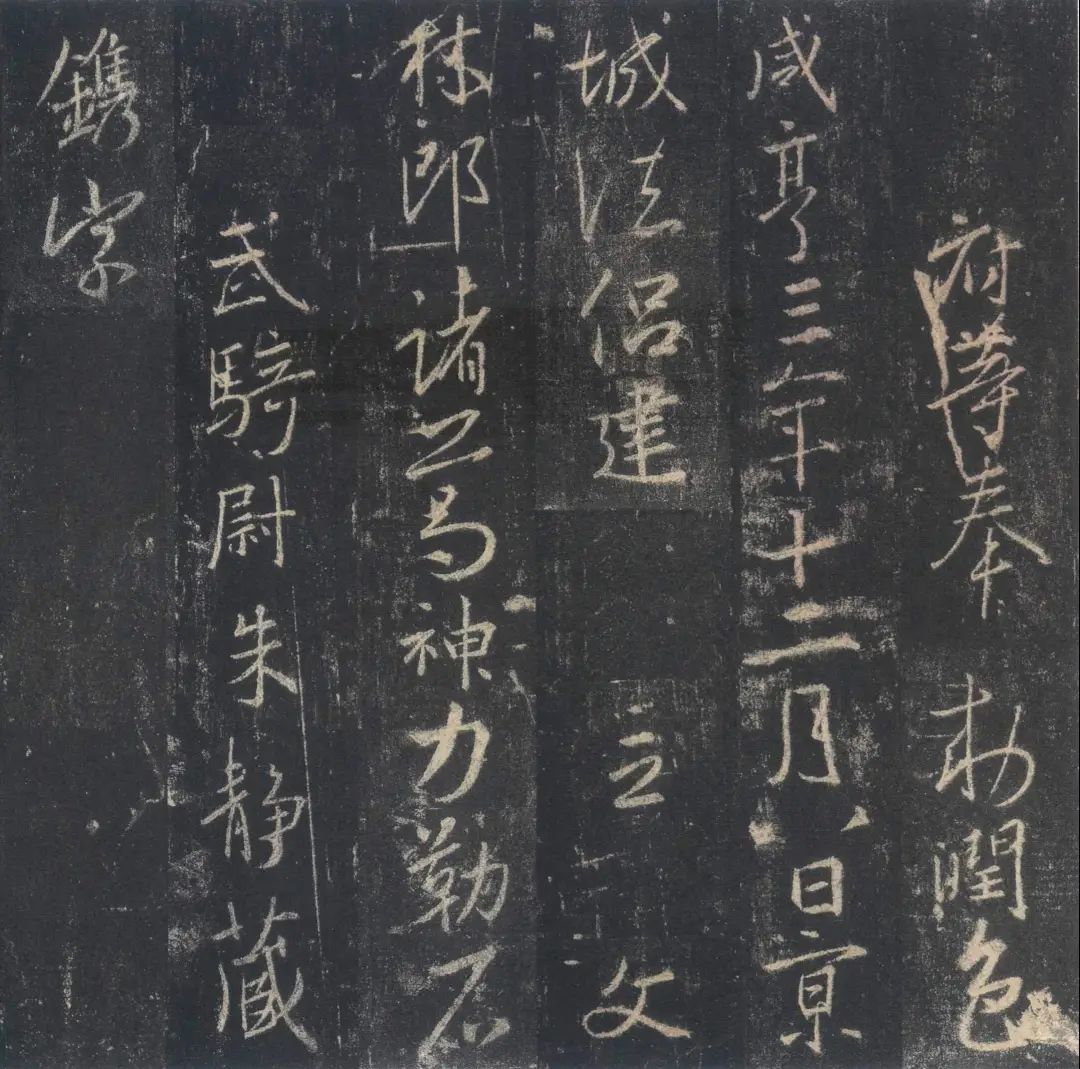 府等奉 勅潤色
咸亨三年十二月八日京
城法侶建 立 文
林郎諸葛神力勒石
武騎尉朱靜藏
鐫字